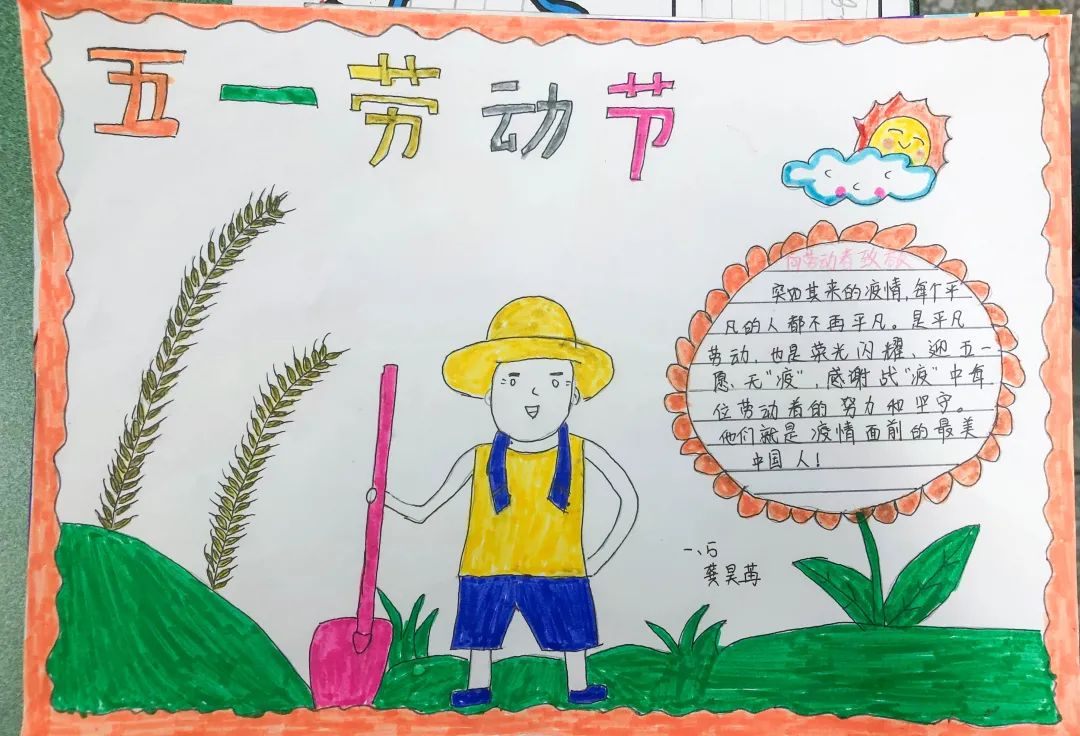 五一劳动节
向劳动者致敬
突如其来的疫情，每个平
凡的人都不再平凡。是平凡
劳动，也是荣光闪耀、迎五一
愿，无“疫”，感谢战“疫”中每
位劳动者的努力和坚守。
他们就是疫情面前的最美
中国人！
一、5
龚昊苒